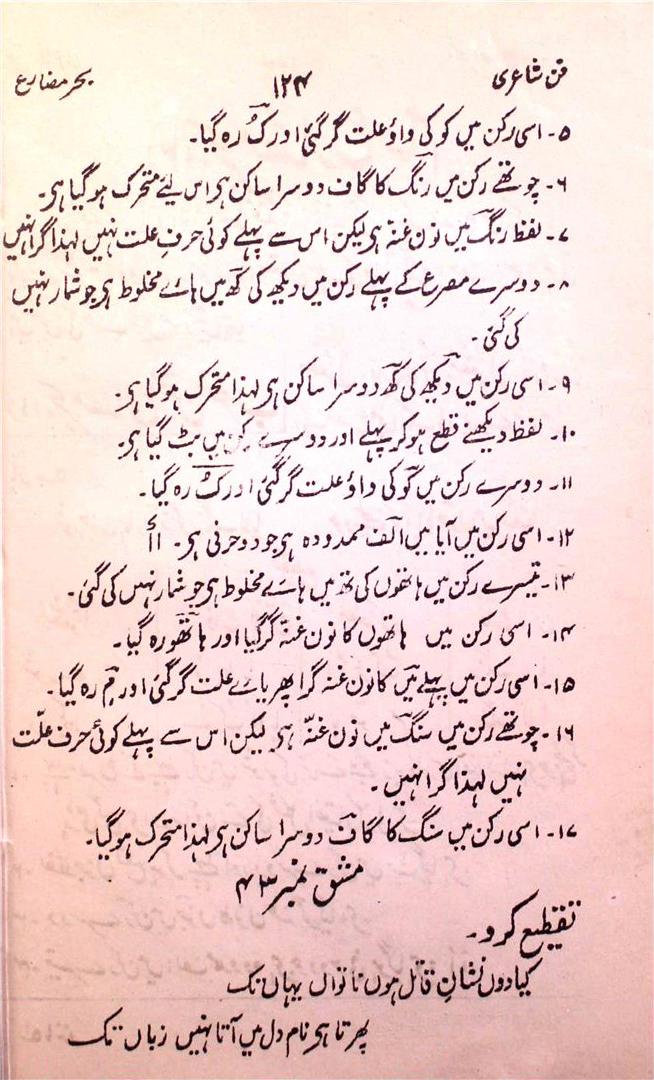 فن شاعری ۱۲۴ بحر مضارع
۵۔ اسی رکن میں کو کی واؤ علت گر گئی اور کُ رہ گیا۔
۶۔ چوتھے رکن میں رنگ کا گاف دوسرا ساکن ہی اس لیئے متحرک ہو گیا ہی۔
۷۔ لفظ رنگ میں نون غنہ ہی لیکن اس سے پہلے کوئی حرفِ علت نہیں لہذا گرا نہیں
۸۔ دوسرے مصرع کے پہلے رکن میں دیکھ کی کھ میں ہائے مخلوط ہی جو شمار نہیں
کی گئی۔
۹۔ اسی رکن میں دیکھ کی کھ دوسرا ساکن ہی لہذا متحرک ہو گیا ہی۔
۱۰۔ لفظ دیکھنے قطع ہو کر پہلے اور دوسرے رکن میں بٹ گیا ہی۔
۱۱۔ دوسرے رکن میں کو کی واؤ علت گر گئی اور کُ رہ گیا۔
۱۲۔ اسی رکن میں آیا میں الف ممدودہ ہی جو دو حرفی ہی۔ اأ
۱۳۔ تیسرے رکن میں ہاتھوں کی تھ میں ہائے مخلوط ہی جو شمار نہیں کی گئی۔
۱۴۔ اسی رکن میں ہاتھوں کا نون غنہ گر گیا اور ہاتھو رہ گیا۔
۱۵۔ اسی رکن میں پہلے میں کا نون غنہ گرا پھر یائے علت گر گئی اور مِ رہ گیا۔
۱۶۔ چوتھے رکن میں سنگ میں نون غنّہ ہی لیکن اس سے پہلے کوئی حرف علّت
نہیں لہذا گرا نہیں۔
۱۷۔ اسی رکن میں سنگ کا گاف دوسرا ساکن ہی لہذا متحرک ہو گیا۔
مشق نمبر ۴۳
تقطیع کرو۔
کیا دوں نشانِ قاتل ہوں ناتواں یہاں تک
پھرتا ہی نام دل میں آتا نہیں زباں تک